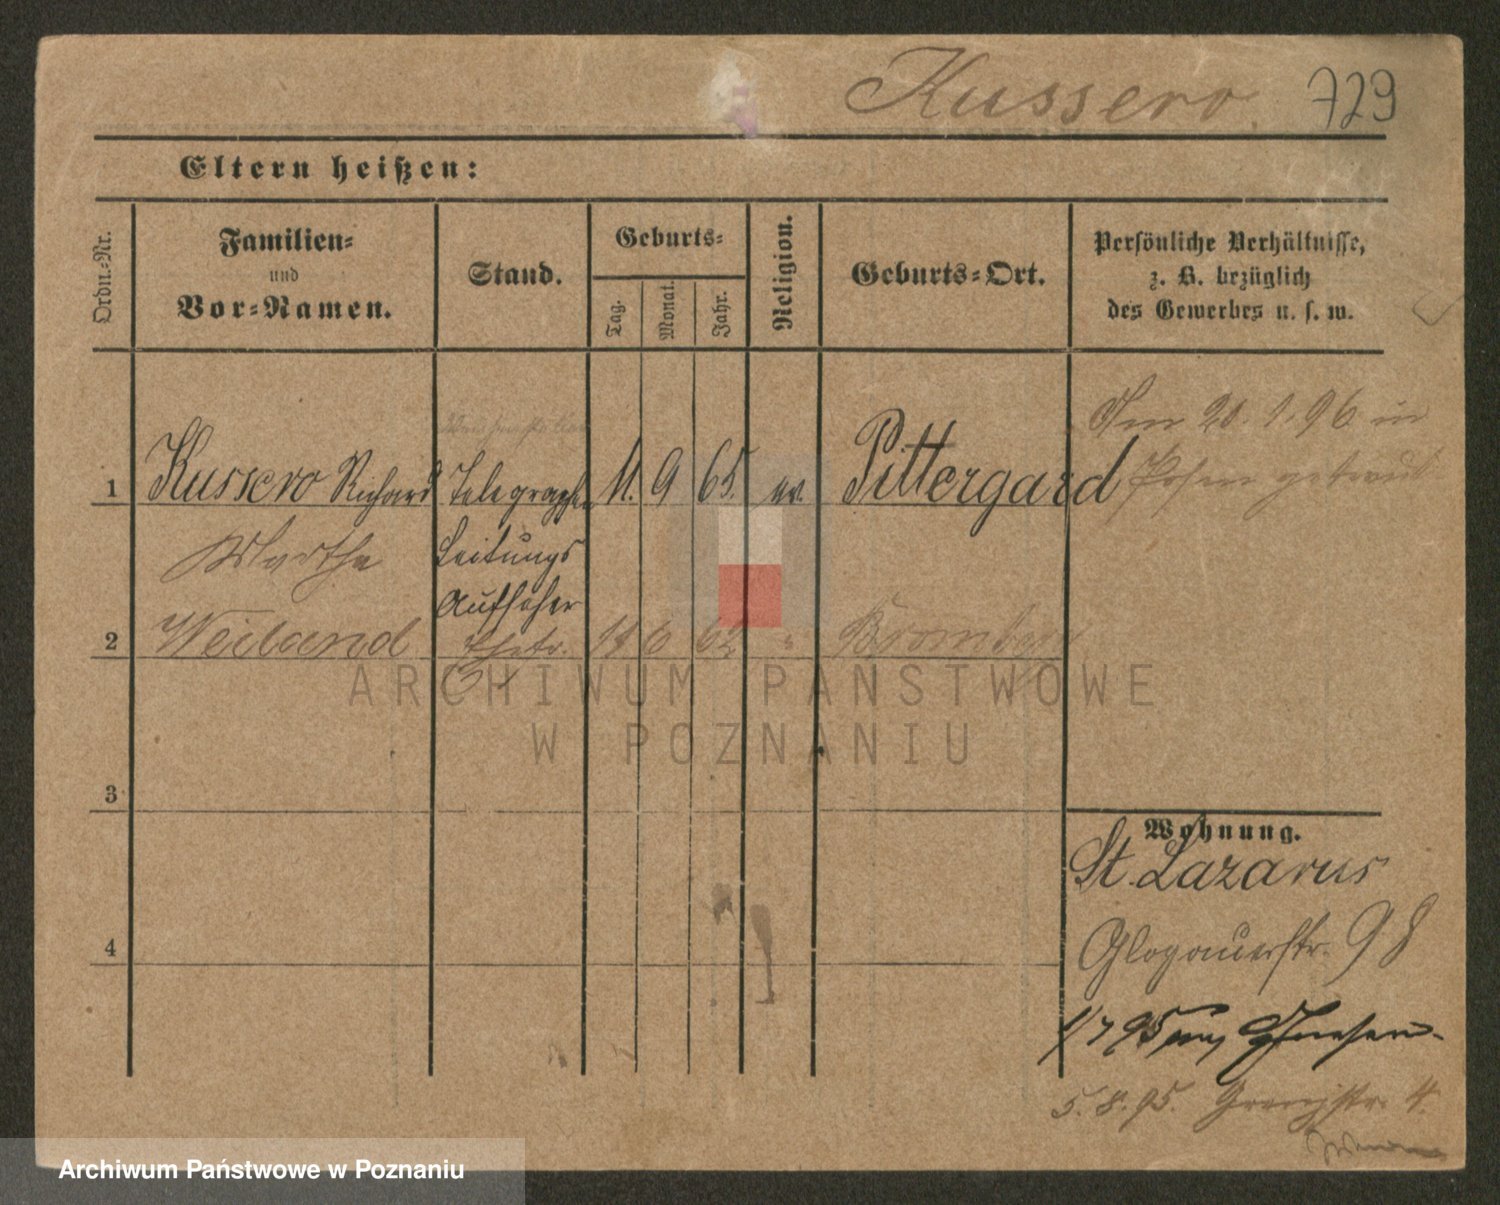 Kussero. 729
Eltern heißen:
Ordn.-Nr.
Familien-
und
Vor-Namen.
Stand.
Geburts-
Tag.
Monat.
Jahr.
Religion.
Geburts-Ort.
Persönliche Verhältnisse,
z. B. bezüglich
des Gewerbes u. s. w.
Am 20. 1. 96 in
Posen getraut
1 Kussero Richard Telegraphen 11. 9 65. ev. Pittergard
Leitungs
Aufseher
Martha
2 Weiland Ehefr. 14 6 62 " Bromberg
3
4
Wohnung.
St. Lazarus
Glogauerstr. 98
1/7 95
5. 8. 95. 4.
ARCHIWUM PAŃSTWOWE
W POZNANIU
Archiwum Państwowe w Poznaniu